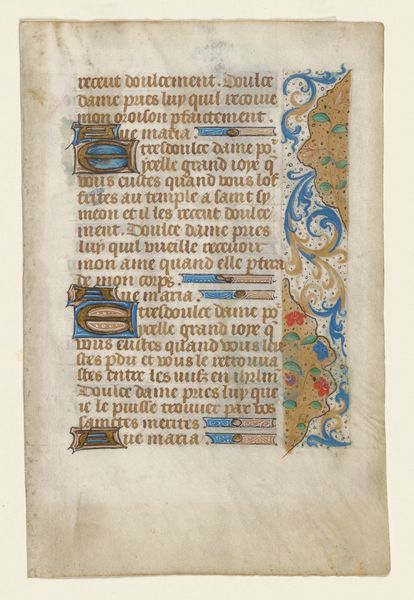 receut doulcement. Doulce
dame pries luy quil recoive
mon oroison pfaictement.
Ave maria.
E tresdoulce dame por
ycelle grand ioye q
vous eustes quand vous lof
fertes au temple a saint sy
meon et il les receut doulce
ment. Doulce dame pries
luy quil vueille recevoir
mon ame quand elle ptira
de mon corps.
Ave maria.
E tresdoulce dame po
ycelle grand ioye q
vous eustes quand vous leu
stes pdu et vous le retrouva
stes entre les iuifz en ihrlm
Doulce dame pries luy que
ie le puisse trouver par vos
sainctes merites
Ave maria.